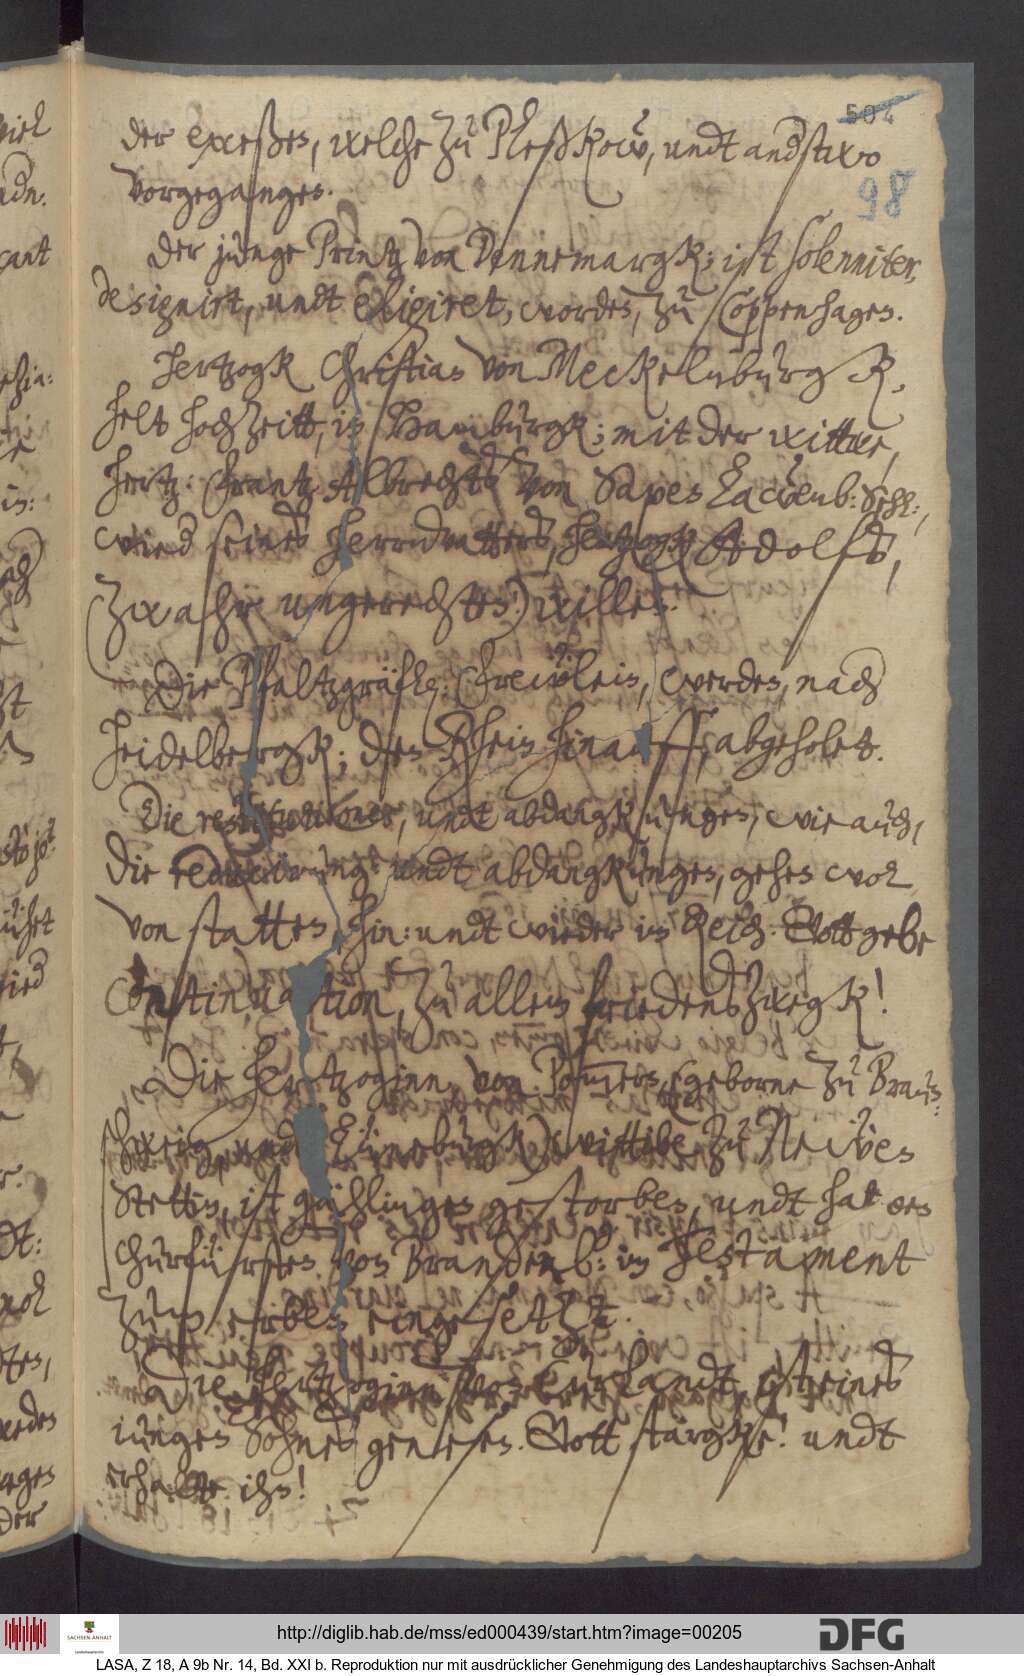 504
98
der exceßen, welche zu Pleßkow, undt anderstwo
vorgegangen.
Der junge Printz von Dennemargk; ist solenniter,
designirt, undt eligiret, worden, zu Coppenhagen.
Hertzogk Christian von Meckelnburgk,
helt hochzeitt, in Hamburgk; mit der wittwe,
Hertz: Frantz Albrechts von Saxen Lawenb: Sehl:,
wieder seines Herrnvatters, Hertzogk Adolfs,
(zwahr ungerechten) willen.
Die Pfaltzgräfl: Frewlein, werden, nach
Heidelbergk; den Rhein hinauff, abgeholet.
Die restitutiones, undt abdangkungen, wie auch,
die reducirung: undt abdangkungen, gehen wol
von statten, hin: undt wieder im Reich. Gott gebe
Continuation, zu allem friedenszwegk!
Die Hertzoginn, von Pommern, (geborne zu Braun:
schweig, und Lüneburgk) wittibe zu Newen
Stettin, ist gählingen gestorben, undt hat den
Churfürsten von Brandenb: im Testament
zum erben eingesetzt.
Die Hertzoginn von Curlandt, ist eines
jungen Sohnes genesen. Gott stärgke! undt
erhalte ihn!
http://diglib.hab.de/mss/ed000439/start.htm?image=00205
SACHSEN-ANHALT
Landeshauptarchiv
DFG
LASA, Z 18, A 9b Nr. 14, Bd. XXI b. Reproduktion nur mit ausdrücklicher Genehmigung des Landeshauptarchivs Sachsen-Anhalt